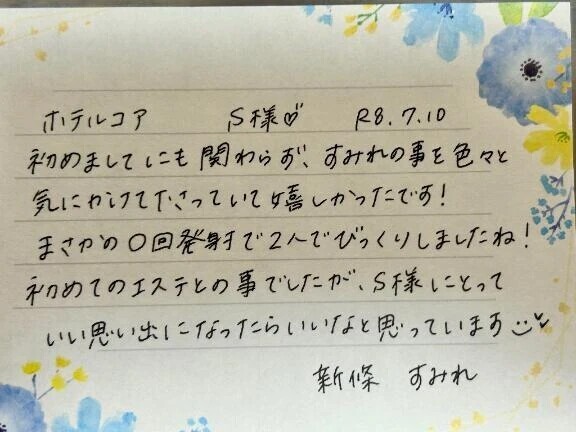 ホテルコア S様♡ R8.7.10
初めましてにも関わらず、すみれの事を色々と
気にかけて下さっていて嬉しかったです!
まさかの〇回発射で2人でびっくりしましたね!
初めてのエステとの事でしたが、S様にとって
いい思い出になったらいいなと思っています
新條 すみれ